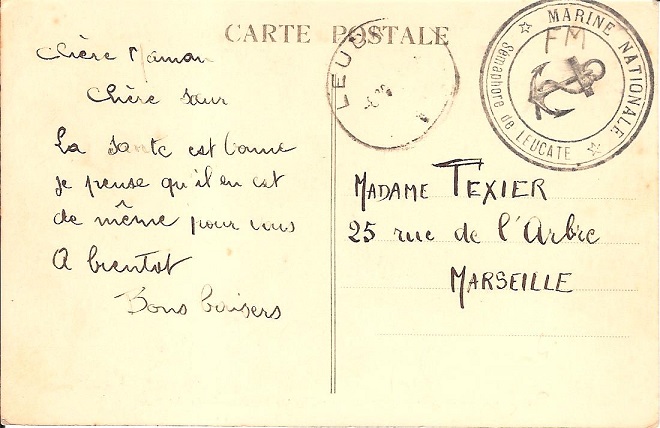 CARTE POSTALE
MARINE NATIONALE
FM
Sémaphore de LEUCATE
LEUC
Chère Maman
Chère sœur
La sante est bonne
je pense qu'il en est
de même pour vous
A bientot
Bons baisers
MADAME TEXIER
25 rue de l'Arbre
MARSEILLE